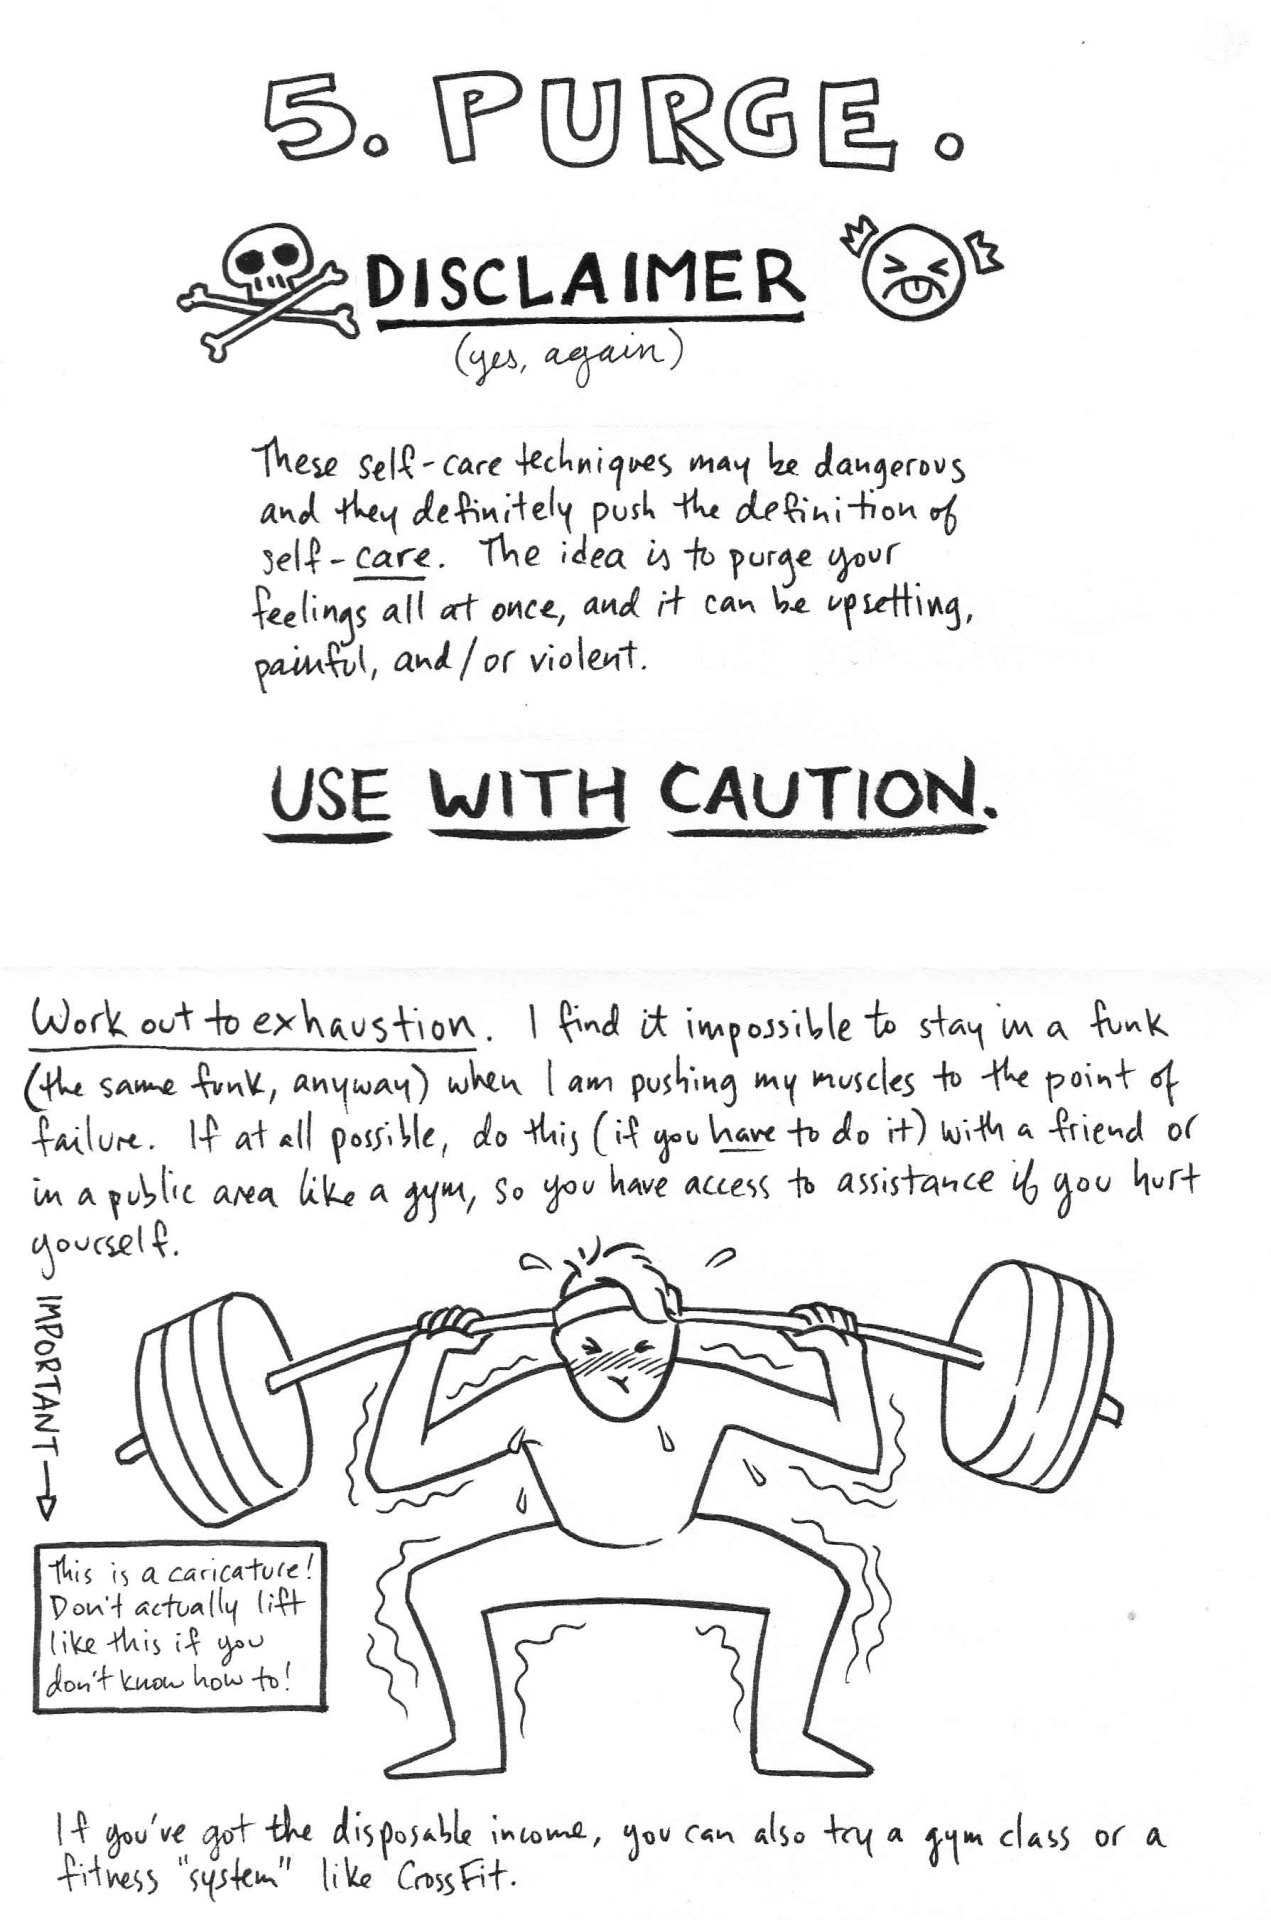 5. PURGE.
DISCLAIMER
(yes, again)
These self-care techniques may be dangerous
and they definitely push the definition of
self-care. The idea is to purge your
feelings all at once, and it can be upsetting,
painful, and/or violent.
USE WITH CAUTION.
Work out to exhaustion. I find it impossible to stay in a funk
(the same funk, anyway) when I am pushing my muscles to the point of
failure. If at all possible, do this (if you have to do it) with a friend or
in a public area like a gym, so you have access to assistance if you hurt
yourself.
IMPORTANT
This is a caricature!
Don't actually lift
like this if you
don't know how to!
If you've got the disposable income, you can also try a gym class or a
fitness "system" like CrossFit.